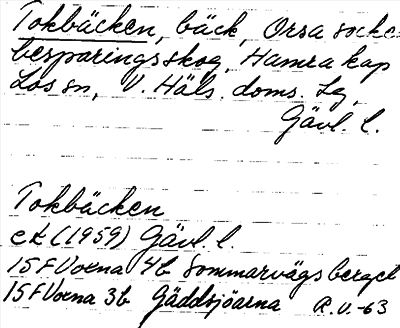 Tokbäcken, bäck, Orsa socke
besparingsskog, Hamra kap
Los sn, V. Häls. doms. Lg,
Gävl. l.
Tokbäcken
ek (1959) Gävl. l.
15F Voxna 4b Sommarvägsberget
15F Voxna 3b Gäddsjöarna R.U.-63